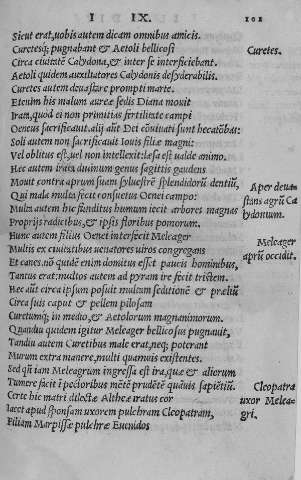 I IX. 101
Sicut erat, uobis autem dicam omnibus amicis.
Curetesq; pugnabant & Aetoli bellicosi
Curetes.
Circa ciuitatē Calydona, & inter se interficiebant.
Aetoli quidem auxiliatores Calydonis desyderabilis.
Curetes autem deuastare prompti marte.
Etenim his malum aureæ sedis Diana mouit
Iram, quod ei non primitias fertilitate campi
Oeneus sacrificauit. alij aūt Dei cōuiuati sunt hecatōbas:
Soli autem non sacrificauit Iouis filiæ magni:
Vel oblitus est, uel non intellexit: læsa est ualde animo.
Hec autem irata diuinum genus sagittis gaudens
Mouit contra aprum suam syluestrē splendidorū dentiū,
Aper deua
Qui mala multa fecit consuetus Oenei campo:
stans agrū Ca
Multas autem hic funditus humum iecit arbores magnas
lydonium.
Proprijs radicibus, & ipsis floribus pomorum.
Hunc autem filius Oenei interfecit Meleager
Meleager
Multis ex ciuitatibus uenatores uiros congregans
aprū occidit.
Et canes. nō quidē enim domitus esset paucis hominibus,
Tantus erat: multos autem ad pyram ire fecit tristem.
Hec aūt circa ipsum posuit multum seditionē & præliū
Circa suis caput & pellem pilosam
Curetumq; in medio, & Aetolorum magnanimorum.
Quandiu quidem igitur Meleager bellicosus pugnauit,
Tandiu autem Curetibus male erat, neq; poterant
Murum extra manere, multi quamuis existentes.
Sed qn iam Meleagrum ingressa est ira, quæ & aliorum
Tumere facit i pectoribus mētē prudētē quāuis sapiētiū.
Cleopatra
Certe hic matri dilectæ Altheæ iratus cor
uxor Melea-
Iacet apud sponsam uxorem pulchram Cleopatram,
gri.
Filiam Marpissæ pulchræ Euenidos